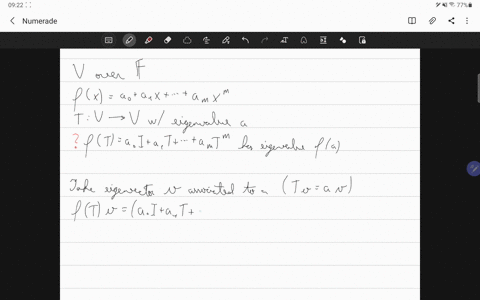 09:22
77%
Numerade
V over F
p(x) = a₀ + a₁x + ⋯ + aₘxᵐ
T : V → V w/ eigenvalue a
? p(T) = a₀I + a₁T + ⋯ + aₘTᵐ has eigenvalue p(a)
Take eigenvector v associated to a (Tv = av)
p(T)v = (a₀I + a₁T +